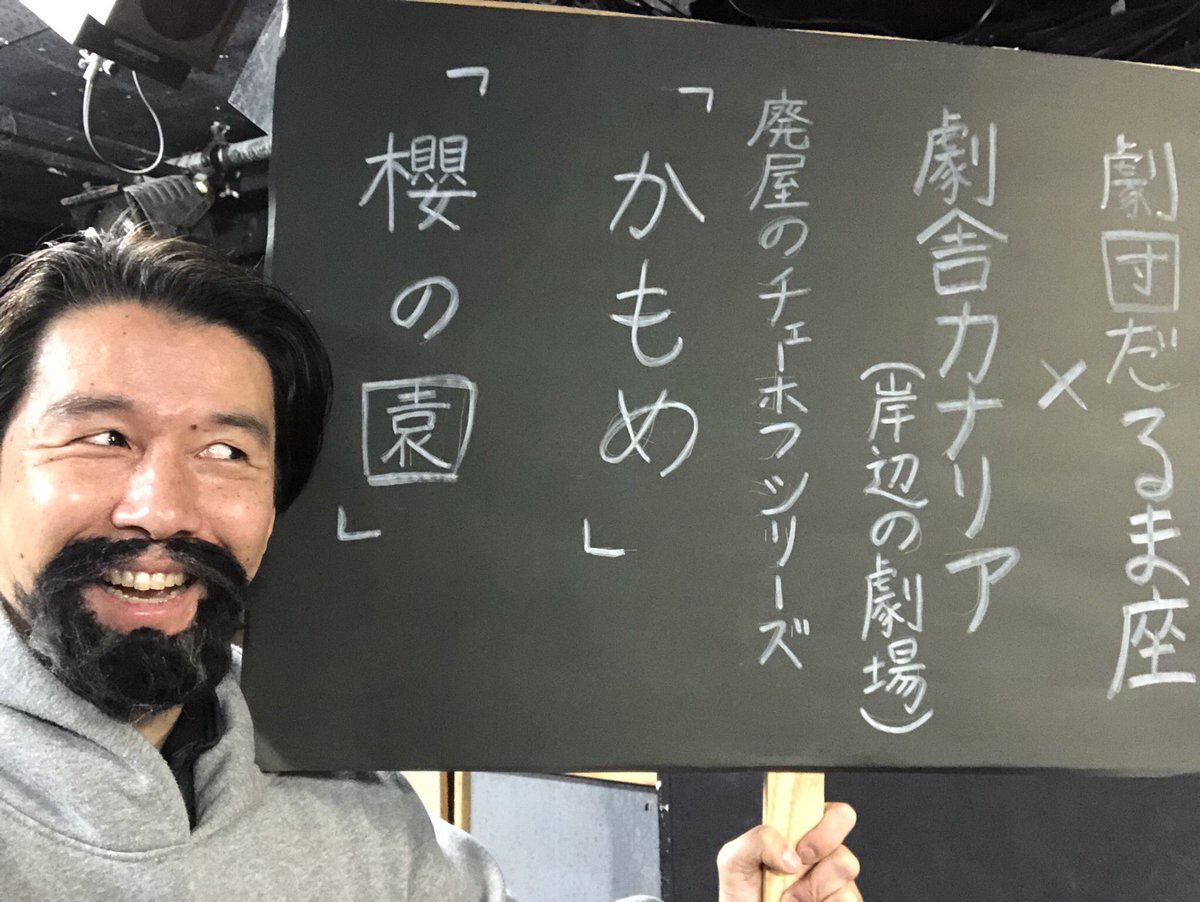 劇団だるま座
×
劇舎カナリア
(岸辺の劇場)
廃屋のチェーホフシリーズ
「かもめ」
「櫻の園」